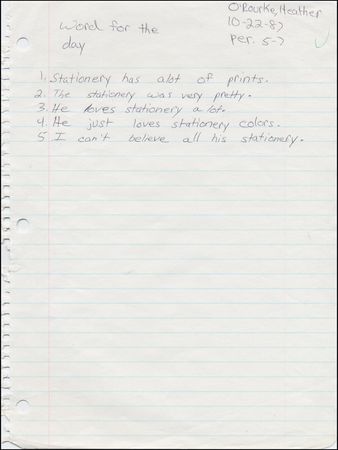 Word for the
day
O'Rourke, Heather
10-22-87
Per. 5-7
1. Stationery has alot of prints.
2. The stationery was very pretty.
3. He loves stationery a lot.
4. He just loves stationery colors.
5. I can't believe all his stationery.